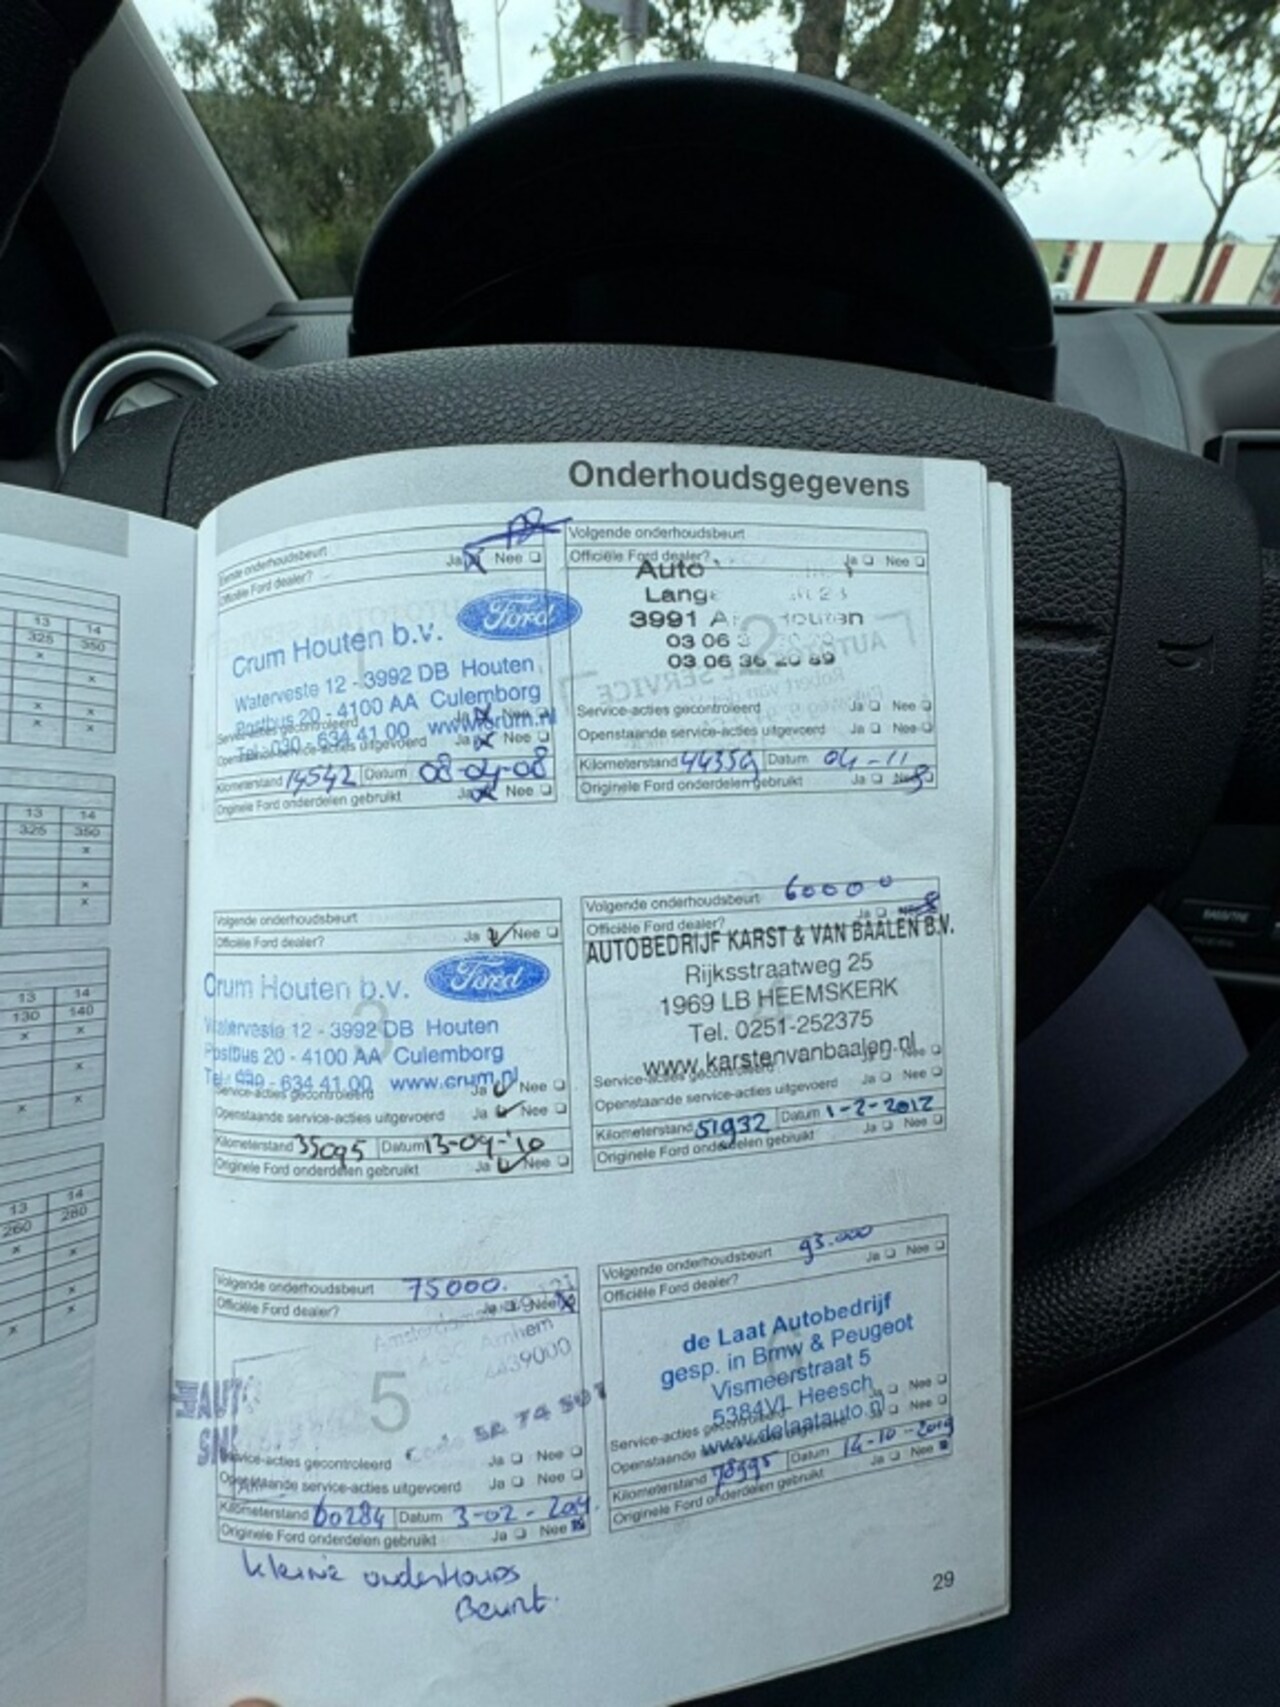 Onderhoudsgegevens
13 14
325 350
x
x
x x
x x
13 14
325 350
x
x
x
13 14
130 140
x x
x
x x
13 14
260 280
x x
x
x
x
Eerste onderhoudsbeurt
Officiële Ford dealer? Ja Nee
Crum Houten b.v. Ford
Waterveste 12 - 3992 DB Houten
Postbus 20 - 4100 AA Culemborg
Tel.: 030 - 634 41 00 www.crum.nl
Service-acties gecontroleerd Ja Nee
Openstaande service-acties uitgevoerd Ja Nee
Kilometerstand 14542 Datum 08-04-08
Originele Ford onderdelen gebruikt Ja Nee
Volgende onderhoudsbeurt
Officiële Ford dealer? Ja Nee
Auto
Lange
3991 A Houten
03 06 3
03 06 36 20 89
2
Service-acties gecontroleerd Ja Nee
Openstaande service-acties uitgevoerd Ja Nee
Kilometerstand 44359 Datum 04-11
Originele Ford onderdelen gebruikt Ja Nee
Volgende onderhoudsbeurt
Officiële Ford dealer? Ja Nee
Crum Houten b.v. Ford
3
Waterveste 12 - 3992 DB Houten
Postbus 20 - 4100 AA Culemborg
Tel.: 030 - 634 41 00 www.crum.nl
Service-acties gecontroleerd Ja Nee
Openstaande service-acties uitgevoerd Ja Nee
Kilometerstand 35095 Datum 13-04-'10
Originele Ford onderdelen gebruikt Ja Nee
Volgende onderhoudsbeurt 60000
Officiële Ford dealer? Ja Nee
AUTOBEDRIJF KARST & VAN BAALEN B.V.
Rijksstraatweg 25
1969 LB HEEMSKERK
Tel. 0251-252375
www.karstenvanbaalen.nl
Service-acties gecontroleerd Ja Nee
Openstaande service-acties uitgevoerd Ja Nee
Kilometerstand 51932 Datum 1-2-2012
Originele Ford onderdelen gebruikt Ja Nee
Volgende onderhoudsbeurt 75000.
Officiële Ford dealer? Ja Nee
Arnhem
4439000
5
AUTO
Service-acties gecontroleerd Ja Nee
Openstaande service-acties uitgevoerd Ja Nee
Kilometerstand 60284 Datum 3-02-2014
Originele Ford onderdelen gebruikt Ja Nee
Kleine onderhouds
Beurt.
Volgende onderhoudsbeurt 93.000
Officiële Ford dealer? Ja Nee
de Laat Autobedrijf
gesp. in Bmw & Peugeot
Vismeerstraat 5
5384VL Heesch
www.delaatauto.nl
Service-acties gecontroleerd Ja Nee
Openstaande service-acties uitgevoerd Ja Nee
Kilometerstand 78995 Datum 14-10-2019
Originele Ford onderdelen gebruikt Ja Nee
29